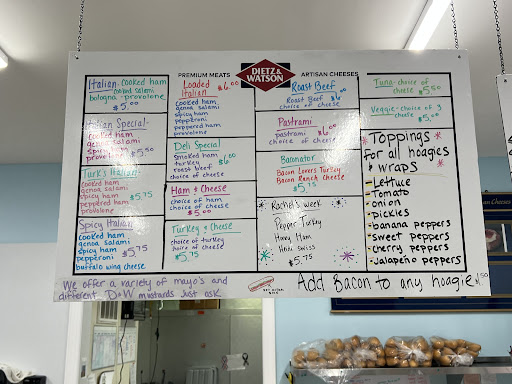 PREMIUM MEATS
DIETZ &
WATSON
ARTISAN CHEESES
Italian - cooked ham
cooked salami
bologna, provolone
$5.00
Italian Special -
cooked ham
genoa salami
provolone
$5.50
Turk's Italian
cooked ham
genoa salami
spicy ham
peppered ham
provolone
$5.75
Spicy Italian
cooked ham
genoa salami
spicy ham
pepperoni
buffalo wing cheese
$5.75
Loaded
Italian
$6.00
cooked ham
genoa salami
spicy ham
pepperoni
peppered ham
provolone
Deli Special
smoked ham
turkey
roast beef
choice of cheese
$6.00
Ham & Cheese
choice of ham
choice of cheese
$5.00
Turkey & Cheese
choice of turkey
choice of cheese
$5.75
Roast Beef
Roast Beef
choice of cheese
$6.00
Pastrami
pastrami
choice of cheese
$6.00
Baconator
Bacon Lovers Turkey
Bacon Ranch Cheese
$5.75
Rachel's week
Pepper Turkey
Honey Ham
Swiss
$5.75
Tuna - choice of
cheese
$5.50
Veggie - choice of 3
cheese
$5.00
Toppings
for all hoagies
& wraps
- Lettuce
- Tomato
- onion
- pickles
- banana peppers
- sweet peppers
- cherry peppers
- Jalapeño peppers
We offer a variety of mayo's and
different D&W mustards just ask
Add Bacon to any hoagie